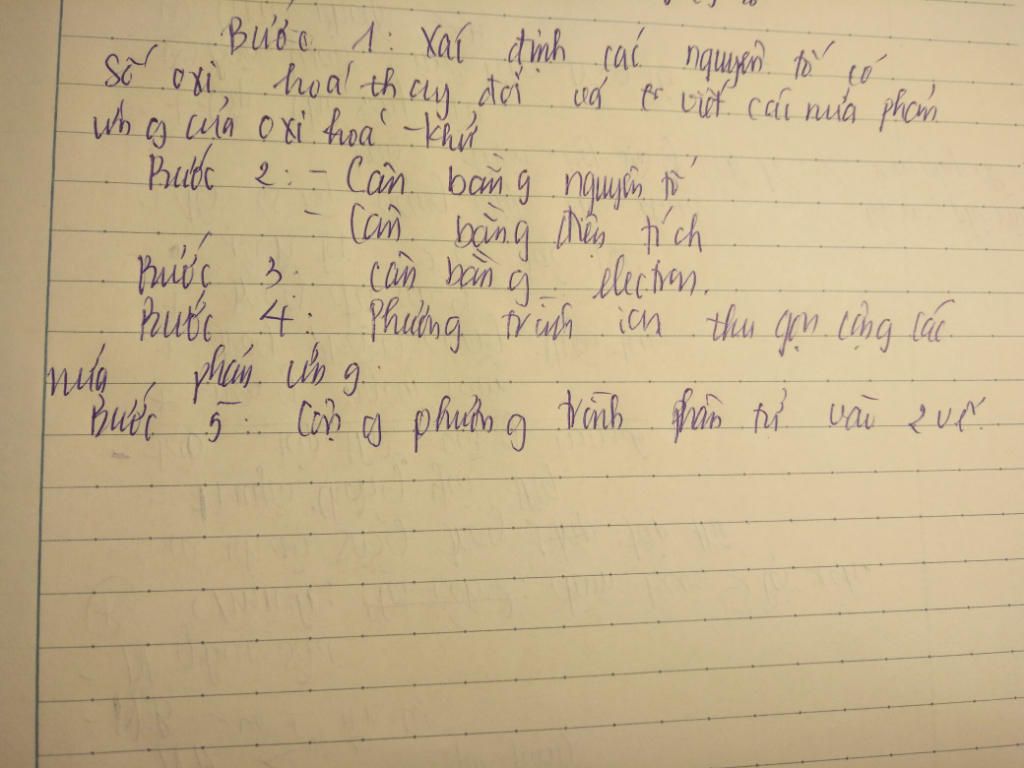 Bước 1: Xác định các nguyên tố có
số oxi hoá thay đổi và viết các nửa phản
ứng của oxi hoá - khử
Bước 2: - Cân bằng nguyên tố
- Cân bằng điện tích
Bước 3: cân bằng electron.
Bước 4: Phương trình ion thu gọn cộng các
nửa phản ứng.
Bước 5: Cộng phương trình phân tử vào 2 vế.